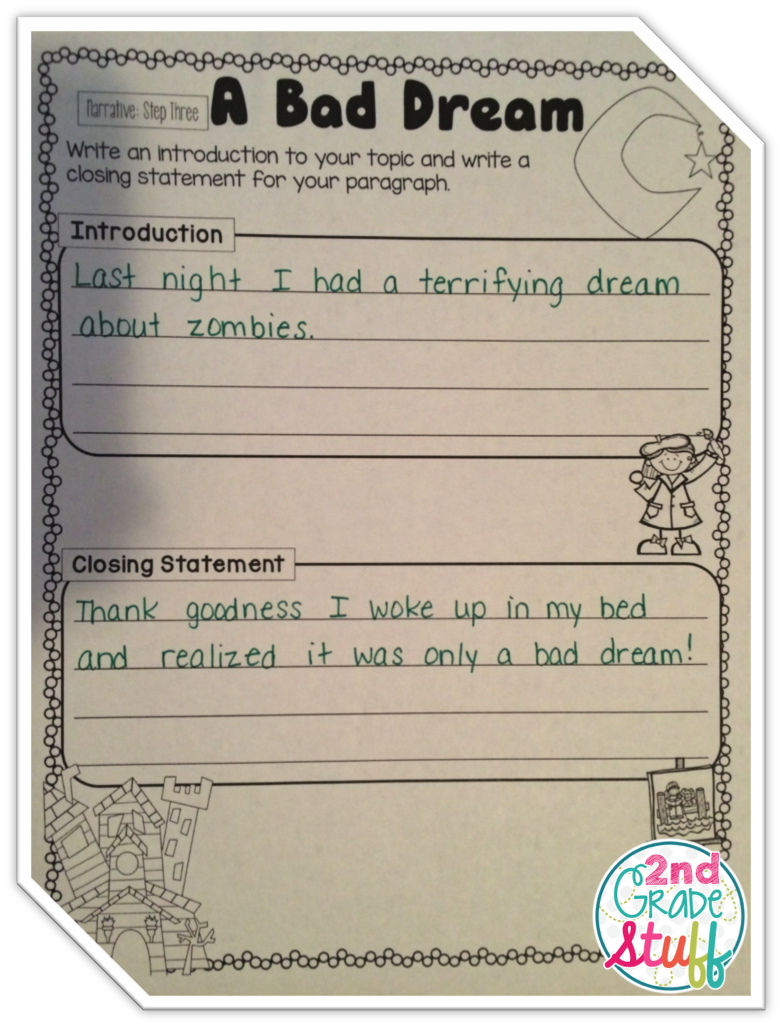 Narrative: Step Three
A Bad Dream
Write an introduction to your topic and write a
closing statement for your paragraph.
Introduction
Last night I had a terrifying dream
about zombies.
Closing Statement
Thank goodness I woke up in my bed
and realized it was only a bad dream!
2nd
Grade
Stuff